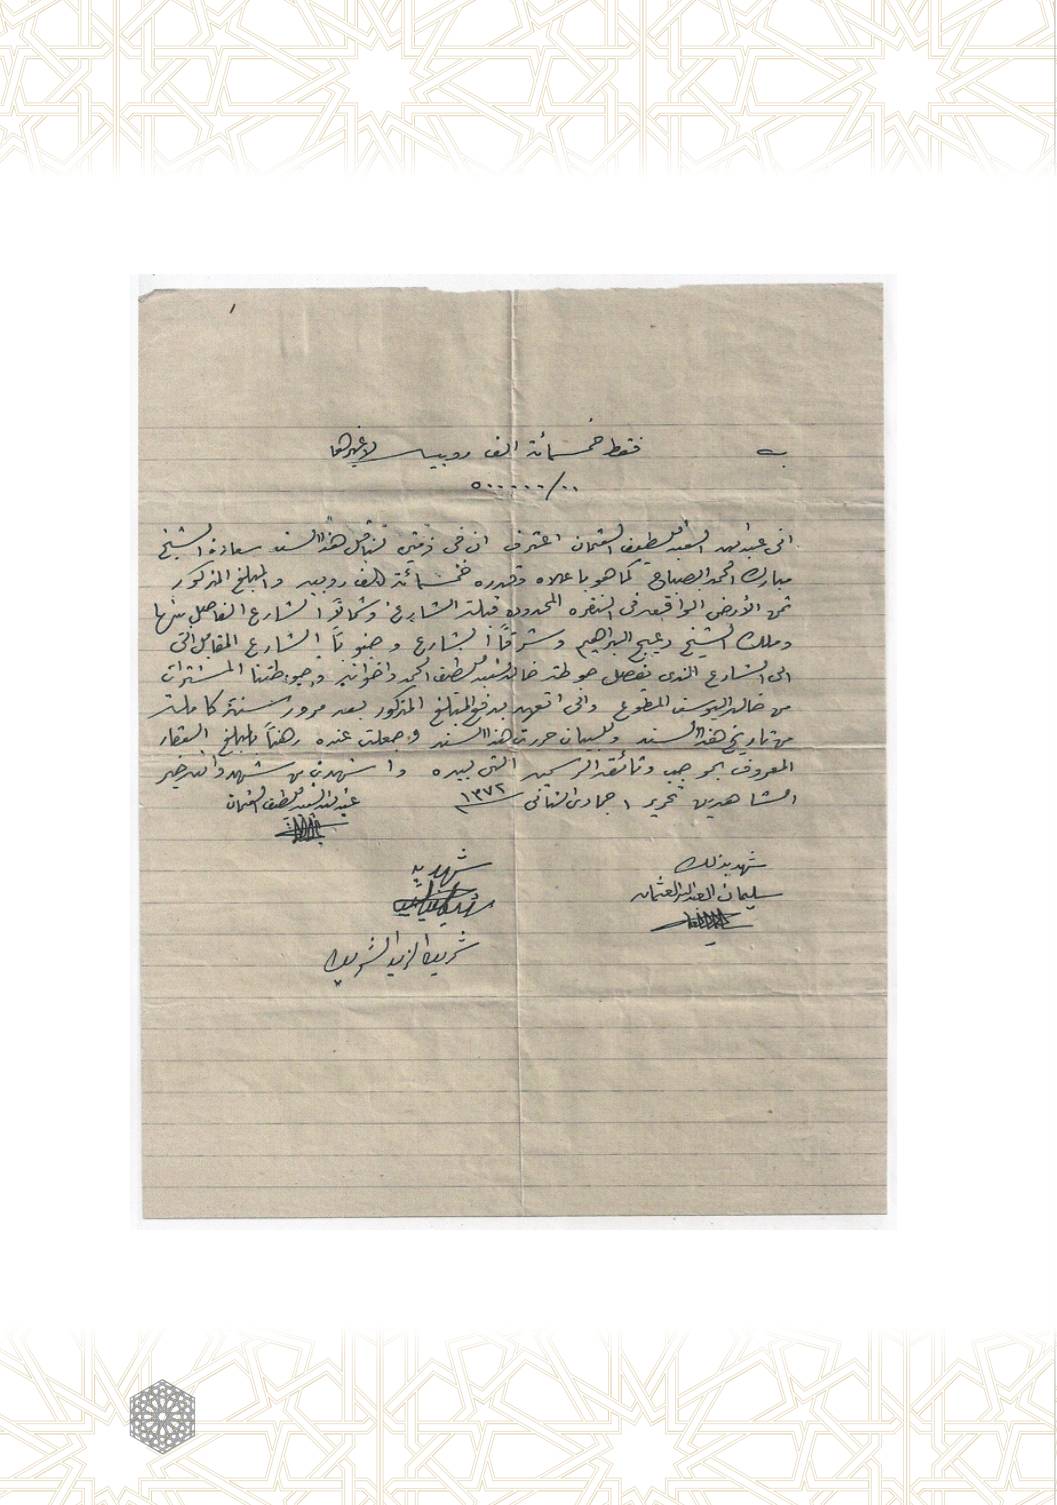 فقط خمسمائة الف روبيه لا غيرها
٥٠٠٠٠٠/٠٠
اني عبدالله العبداللطيف العثمان اعترف ان في ذمتي لناقل هذا السند سعادة الشيخ
مبارك الحمد الصباح كما هو باعلاه وقدره خمسمائة الف روبيه والمبلغ المذكور
ثمن الأرض الواقعه في النقره المحدوده قبلة الشارع وشمالاً الشارع الفاصل بينها
وملك الشيخ دعيج البراهيم وشرقاً الشارع وجنوباً الشارع المقابل الى
الى الشارع الذي يفصل حوطة خالد العبداللطيف الحمد واخوانه وحوطتنا المشترات
من خالد اليوسف المطوع واني اتعهد بدفع المبلغ المذكور بعد مرور سنة كاملة
من تاريخ هذا السند وللبيان حررت هذا السند وجعلت عنده رهناً بالمبلغ العقار
المعروف بموجب وثائقه الرسميه التي بيده واشهدت من شهد والله خير
الشاهدين تحرير ١ جمادى الثاني ١٣٧٢
عبدالله العبداللطيف العثمان
شهد بذلك
سليمان العبدالله العثمان
شهد به